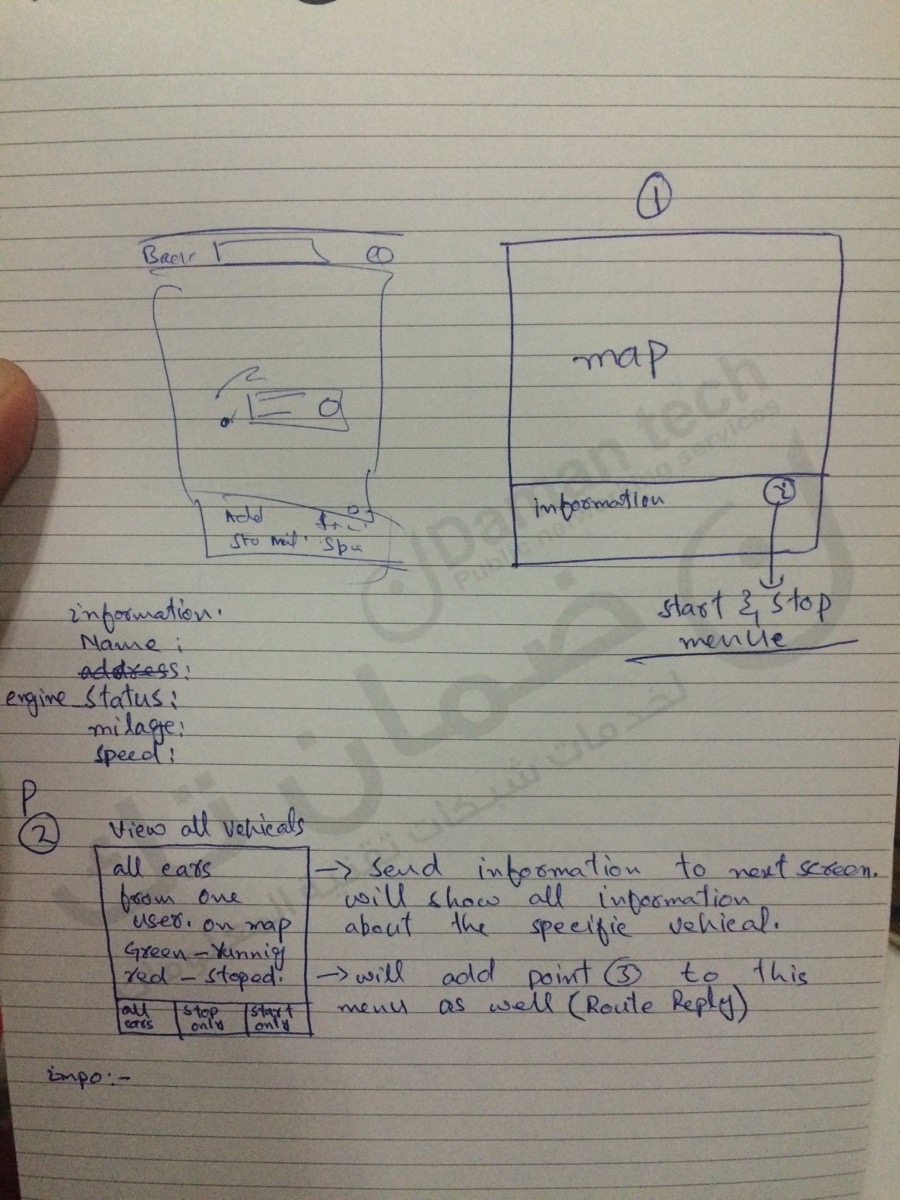 Back
Add
①
map
information
i
start & stop
menue
information.
Name :
address:
engine status:
milage:
speed:
P
② View all vehicals
all cars
from one
user. on map
Green – runnig
red – stoped.
all cars
stop only
start only
→ Send information to next screen.
will show all information
about the specific vehical.
→ will add point ③ to this
menu as well (Route Reply)
impo:-
Daman tech
Public networking services
ضمان تك
لخدمات شبكات تقنية